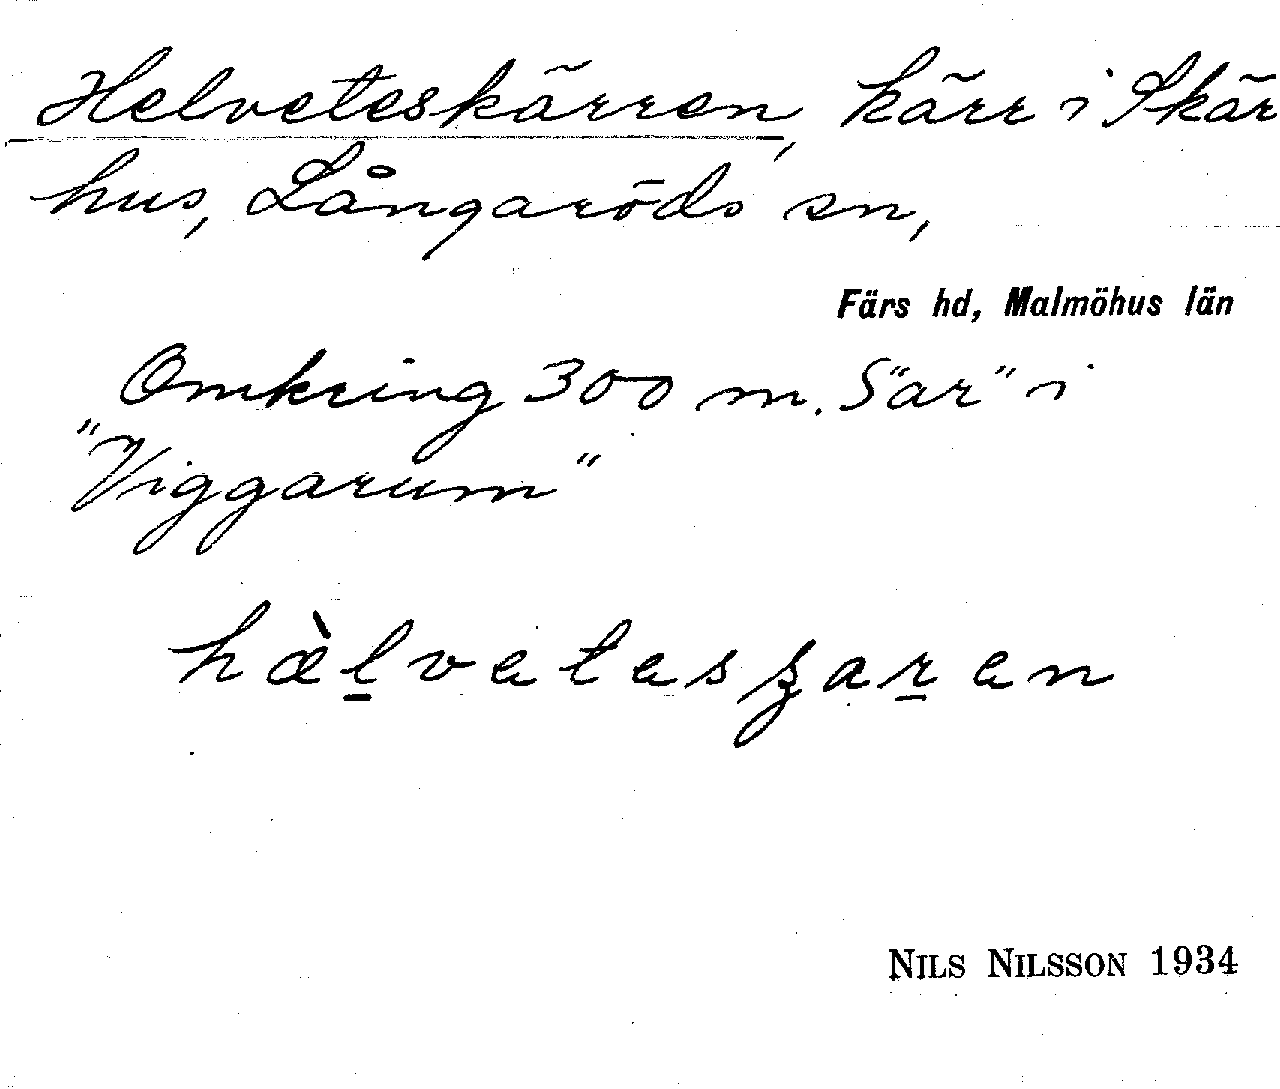 Helveteskärren, kärr i Skär
hus, Långaröds sn,
Färs hd, Malmöhus län
Omkring 300 m. S "ar" i
"Viggarum"
hæ̀l̠veteska r̠en
NILS NILSSON 1934